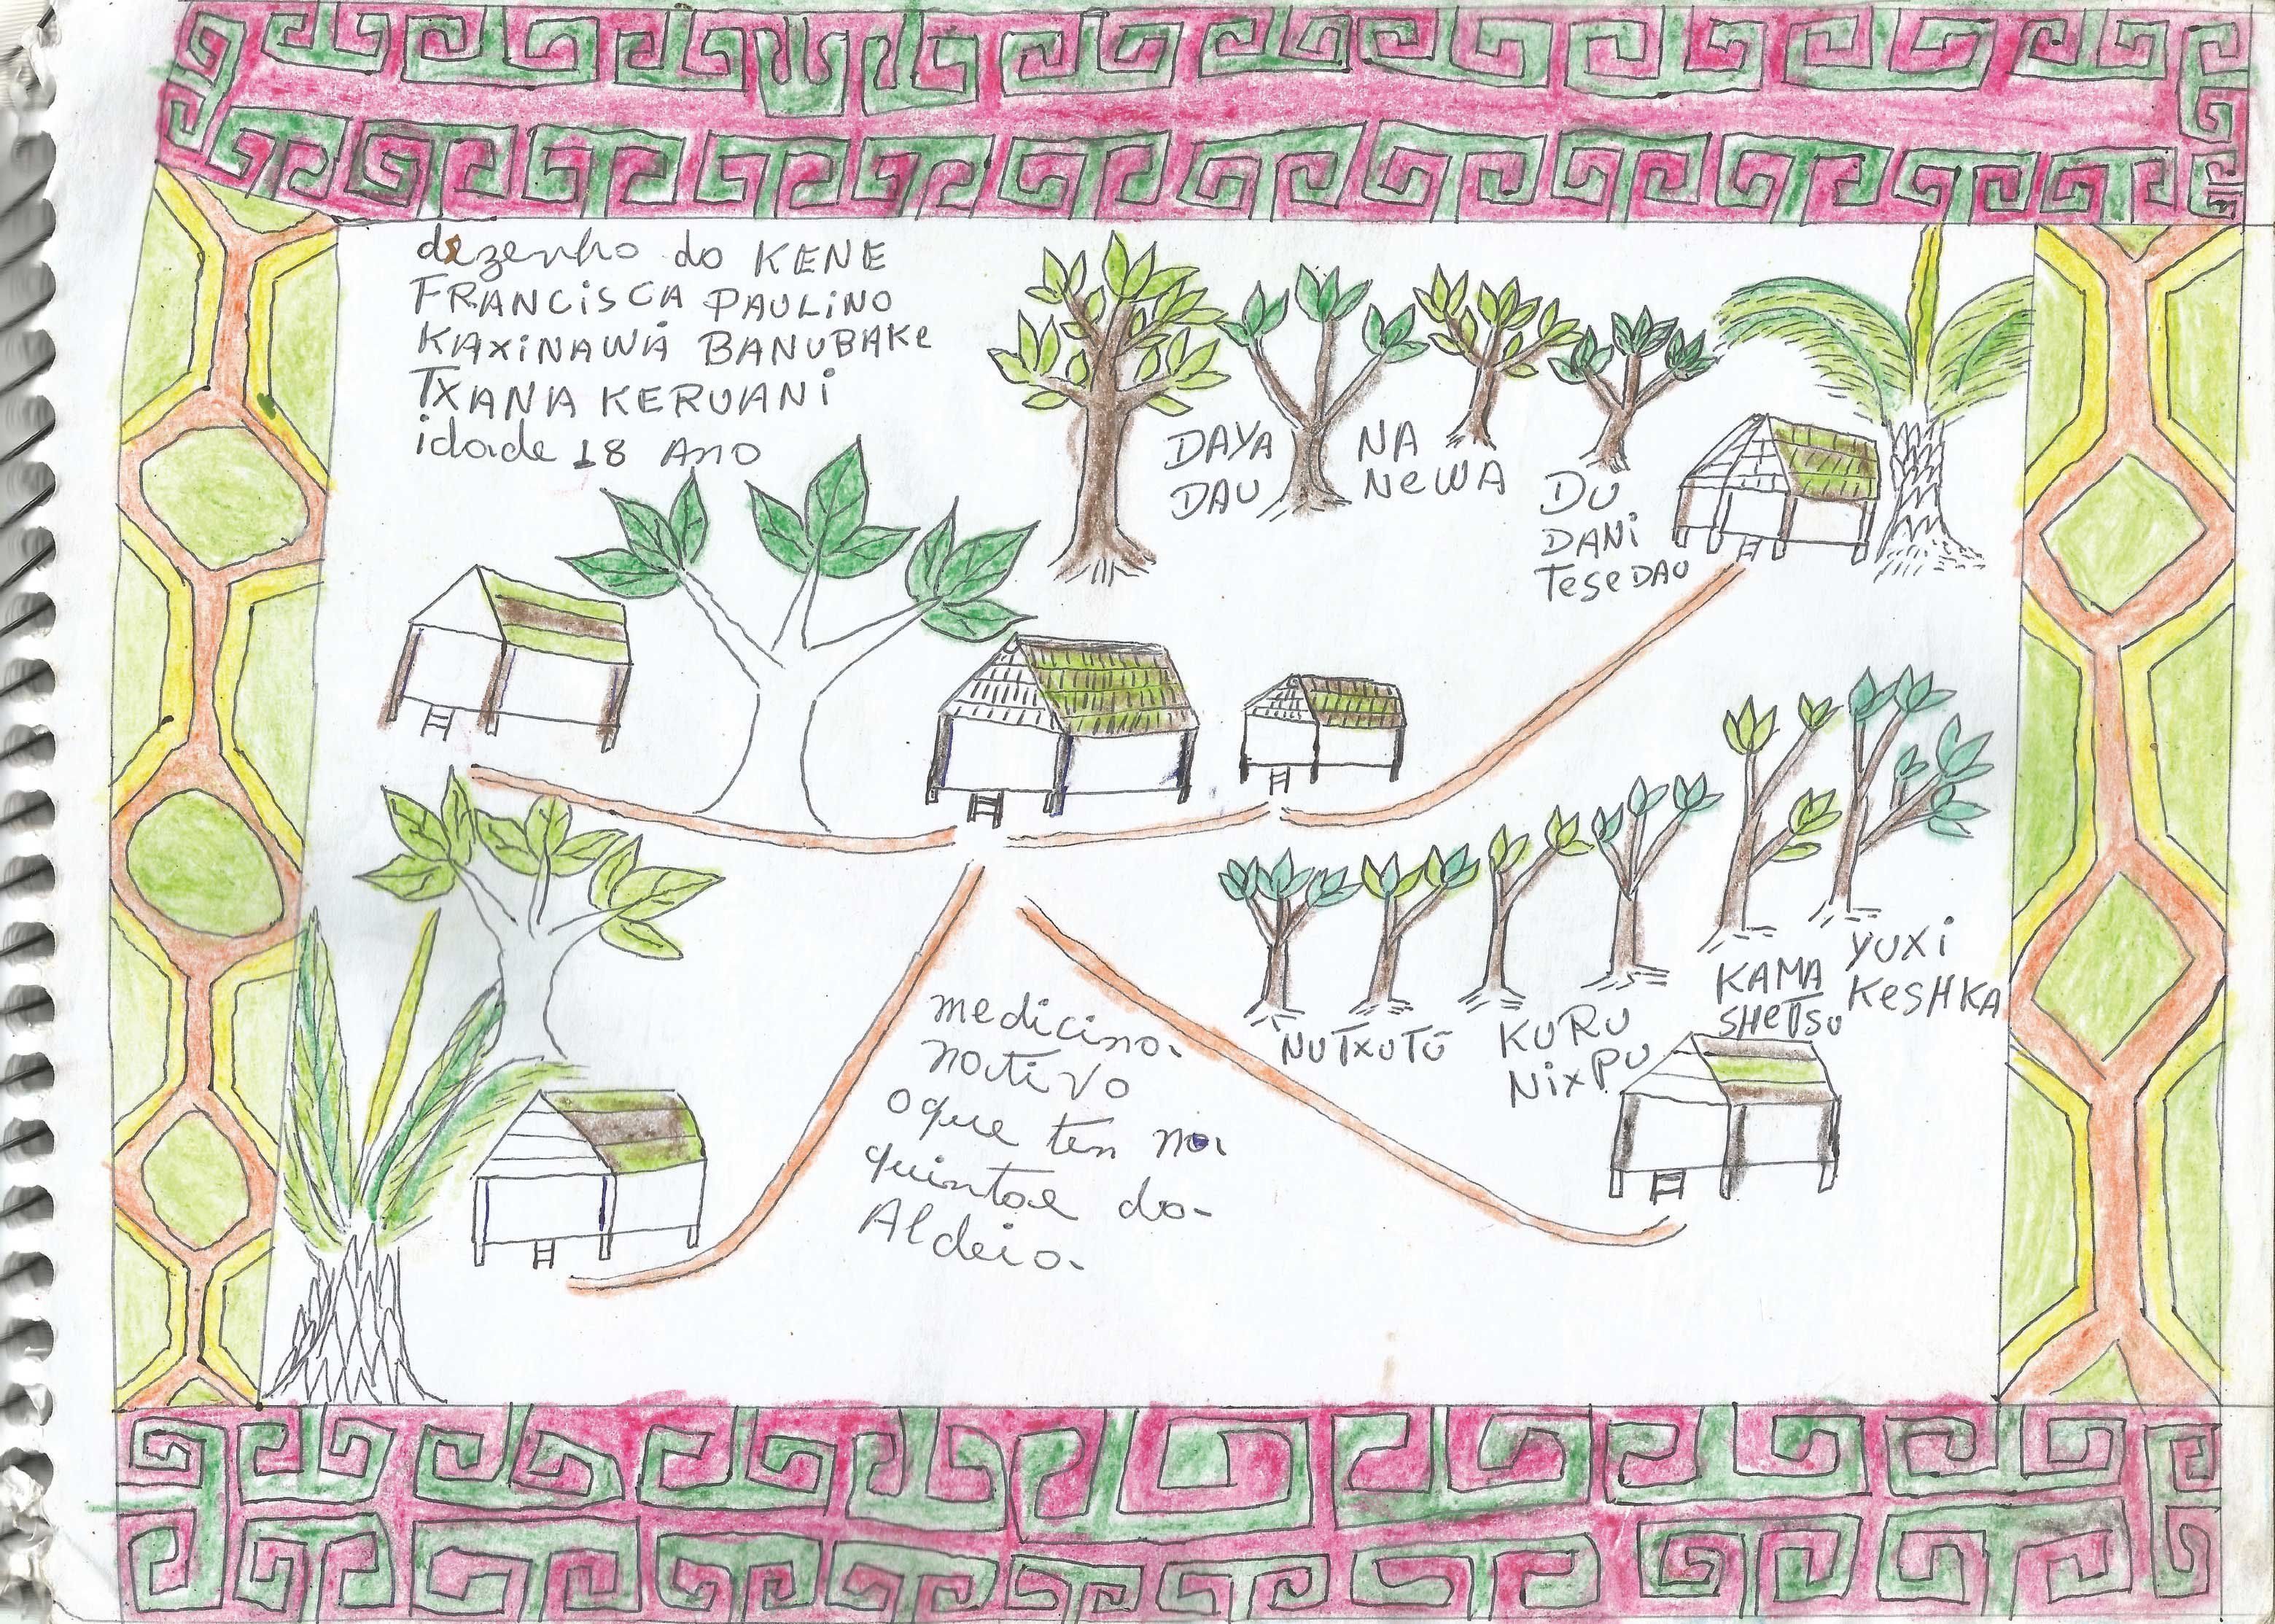 dezenho do KENE
FRANCISCA PAULINO
KAXINAWÁ BANUBAKE
TXANA KERUANI
idade 18 Ano
DAYA
DAU
NA
NEWA
DU
DANI
TESE DAU
YUXI
KESHKA
KAMA
SHETSU
KURU
NIXPU
NUTXUTŨ
medicina
nativo
oque ten na
quintae da
Aldeia